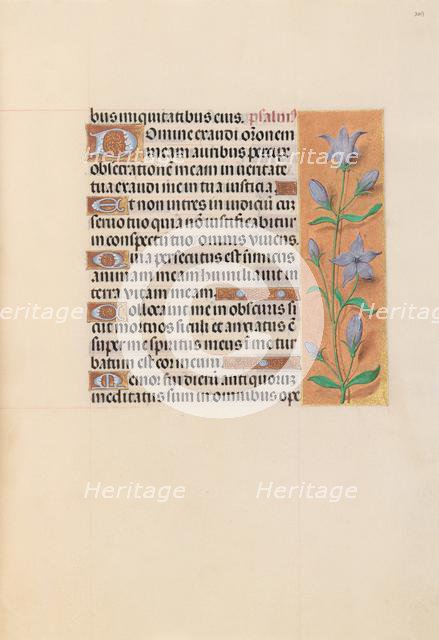 bus iniquitatibus eius. psalm9
Domine exaudi orõnem
meam auribus percipe
obsecratione meam in veritate
tua exaudi me in tua iusticia
Et non intres in iudiciũ cũ
servo tuo quia nõ iustificabitur
in conspectu tuo omnis vivens.
Quia persecutus est inimicus
animam meam humiliavit in
terra vitam meam.
Collocavit me in obscuris si
cut mortuos seculi et anxiatus ẽ
super me spiritus meus ĩ me tur
batum est cor meum.
Memor fui dierũ antiquorũ
meditatus sum in omnibus ope
Heritage
Heritage
Heritage
Heritage
Heritage
Heritage